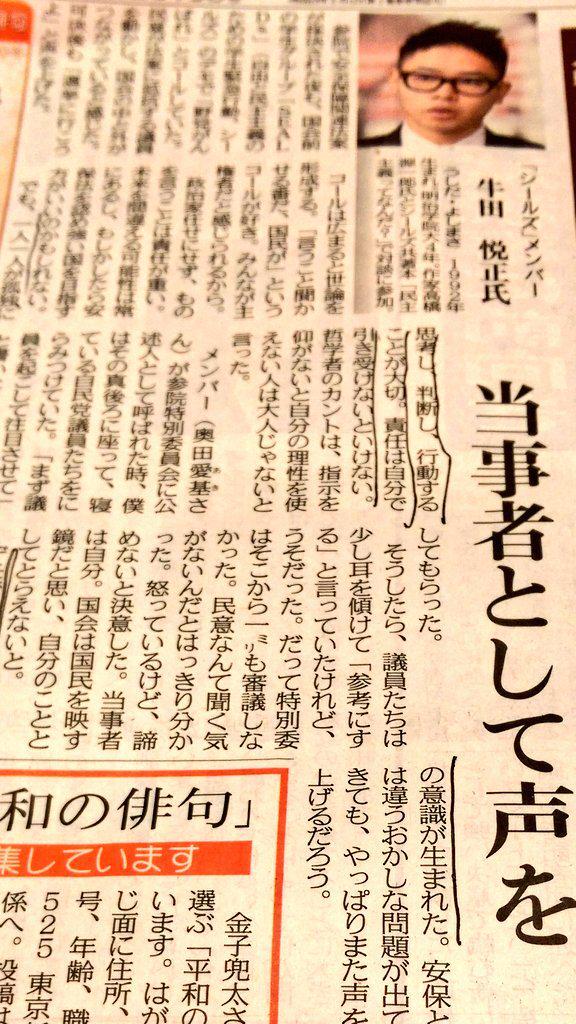 当事者として声を
「シールズ」メンバー
牛田 悦正氏
うしだ・よしまさ 1992年
生まれ。明治学院大4年。作家高橋
源一郎氏とシールズ共著本「民主
主義ってなんだ?」で対談に参加
参院で安全保障関連法案
が採決された後も、国会前
の学生グループ「SEAL
Ds」(自由と民主主義の
ための学生緊急行動、シー
ルズ)の
ばれ」とコールしていた。
を動かし、国会の中と外が
つながっていると感じた。
可決後も「選挙に行こう
よ」と声を上げた。
コールは広まると世論を
形成する。「言うこと聞か
せる番だ、国民が」という
コールが好き。みんなが主
権者だと感じられるから。
政治家任せにせず、もの
を言うことは責任が重い。
未来を間違える可能性は常
にあるし、もしかしたら安
保法を認め強い国を目指す
方がいいのかもしれない。
でも、一人一人が孤独に
思考し、判断し、行動する
ことが大切。責任は自分で
引き受けないといけない。
哲学者のカントは、指示を
仰がないと自分の理性を使
えない人は大人じゃないと
言った。
メンバー(奥田愛基さ
ん)が参院特別委員会に公
述人として呼ばれた時、僕
はその真後ろに座って、寝
ている自民党議員たちをに
らみつけていた。「まず議
員を起こして注目させて」
してもらった。
そうしたら、議員たちは
少し耳を傾けて「参考にす
る」と言っていたけれど、
うそだった。だって特別委
はそこから一㍉も審議しな
かった。民意なんて聞く気
がないんだとはっきり分か
った。怒っているけど、諦
めないと決意した。当事者
は自分。国会は国民を映す
鏡だと思い、自分のことと
してとらえないと。
の意識が生まれた。安保と
は違うおかしな問題が出て
きても、やっぱりまた声を
上げるだろう。
和の俳句」
集しています
金子兜太さ
選ぶ「平和の
います。はが
じ面に住所、
号、年齢、職
525 東京
係へ。投稿は